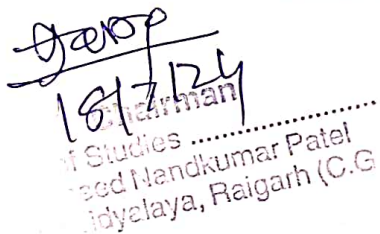 18/7/24
Chairman
of Studies ....................
Nandkumar Patel
idyalaya, Raigarh (C.G